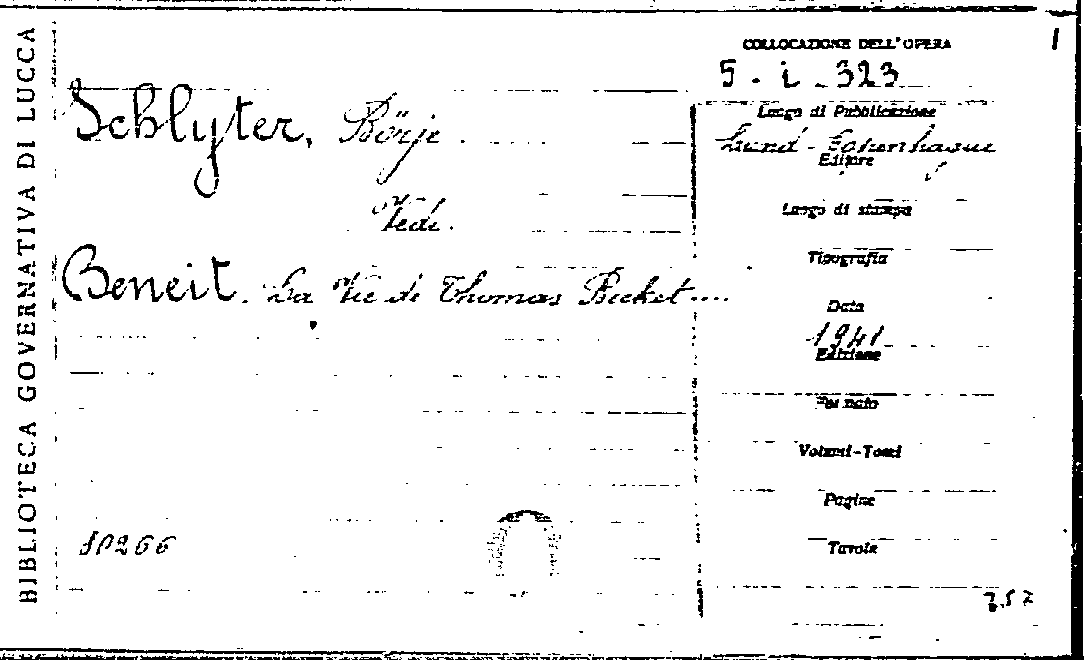 BIBLIOTECA GOVERNATIVA DI LUCCA
Schlyter, Börje
Vedi.
Beneit. La Vie de Thomas Becket....
10266
COLLOCAZIONE DELL'OPERA
5 - i - 323
Luogo di Pubblicazione
Lund - Copenhague
Editore
Luogo di stampa
Tipografia
Data
1941
Edizione
Formato
Volumi-Tomi
Pagine
Tavole